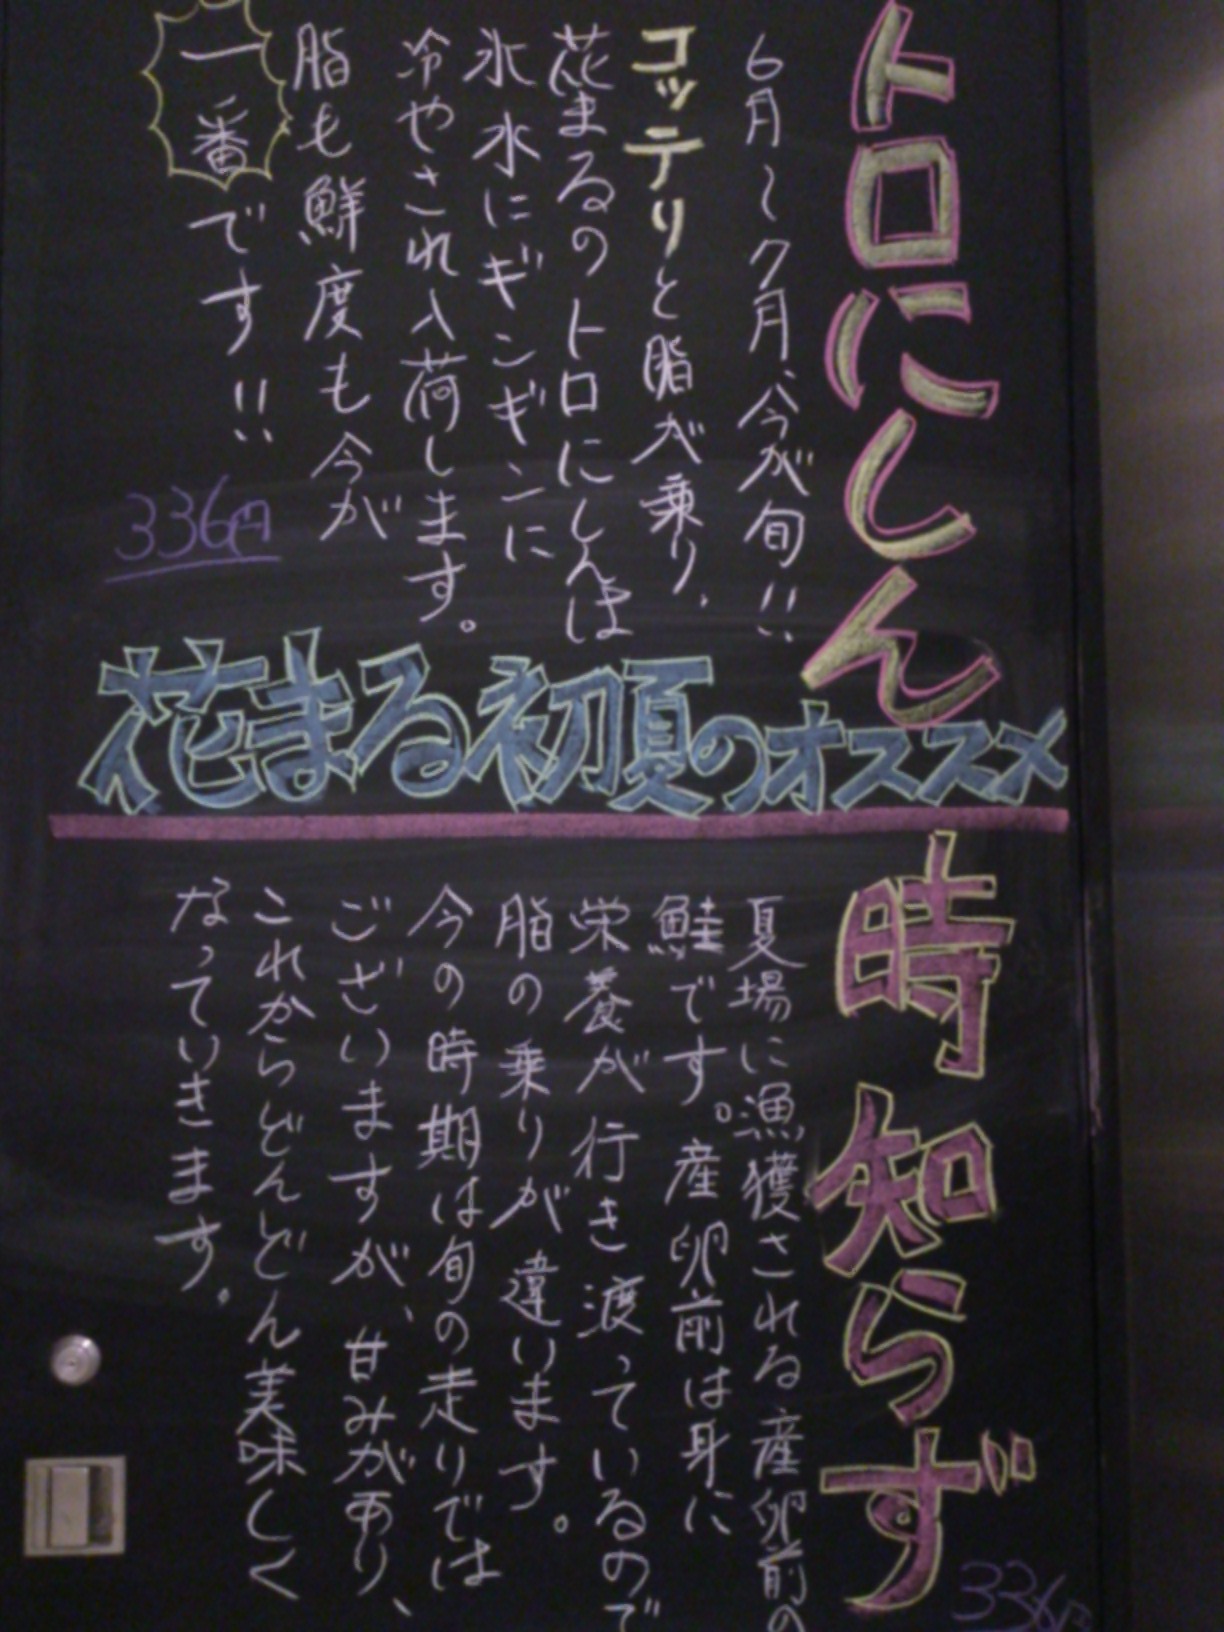 花まる初夏のオススメ
トロにしん
6月～7月、今が旬!!
コッテリと脂が乗り、
花まるのトロにしんは
氷水にギンギンに
冷やされ入荷します。
脂も鮮度も今が
一番です!!
336円
時知らず
夏場に漁獲される産卵前の
鮭です。産卵前は身に
栄養が行き渡っているので
脂の乗りが違います。
今の時期は旬の走りでは
ございますが、甘みがあり、
これからどんどん美味しく
なっていきます。
336円